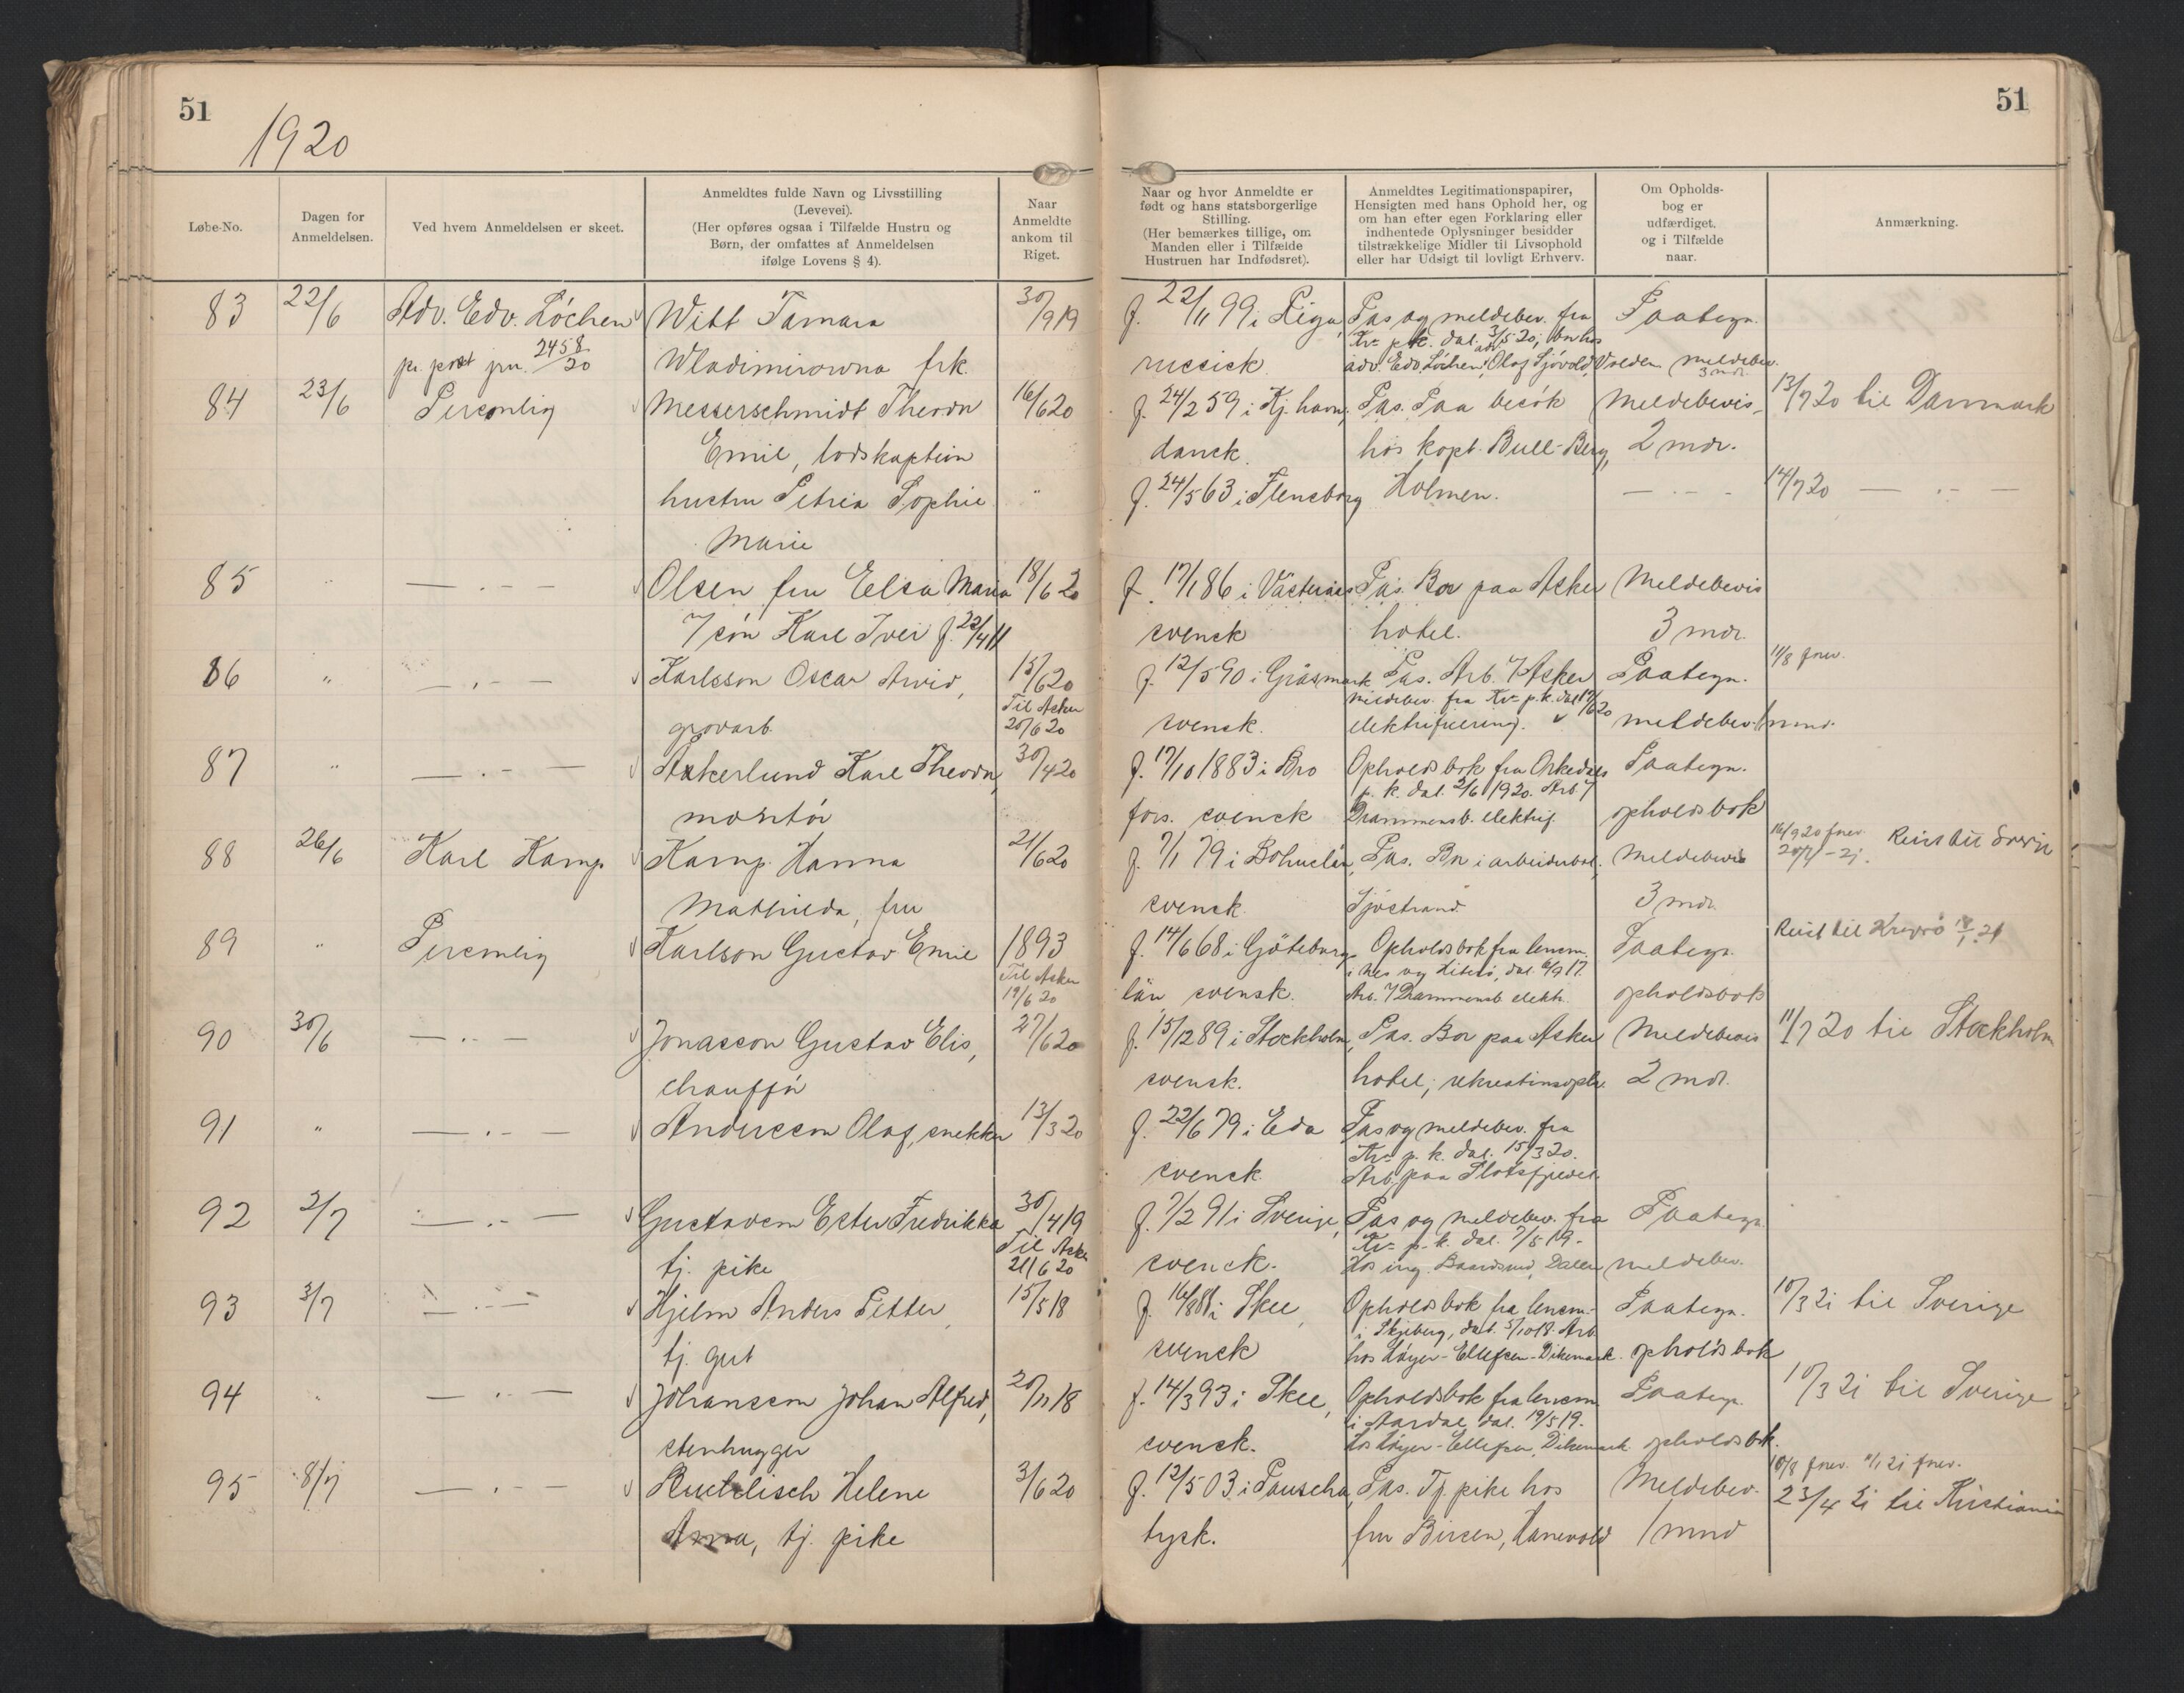 51
1920
51
Løbe-No.
Dagen for
Anmeldelsen.
Ved hvem Anmeldelsen er skeet.
Anmeldtes fulde Navn og Livsstilling
(Levevei).
(Her opføres ogsaa i Tilfælde Hustru og
Børn, der omfattes af Anmeldelsen
ifølge Lovens § 4).
Naar
Anmeldte
ankom til
Riget.
Naar og hvor Anmeldte er
født og hans statsborgerlige
Stilling.
(Her bemærkes tillige, om
Manden eller i Tilfælde
Hustruen har Indfødsret).
Anmeldtes Legitimationspapirer,
Hensigten med hans Ophold her, og
om han efter egen Forklaring eller
indhentede Oplysninger besidder
tilstrækkelige Midler til Livsophold
eller har Udsigt til lovligt Erhverv.
Om Opholds-
bog er
udfærdiget,
og i Tilfælde
naar.
Anmærkning.
83 22/6 Adv. Edv. Löchen Witt Tamara 30/9 19 f. 22/11 99 i Riga, Pas og meldebev. fra Paategn.
Kr. p.k. dat. 3/5 20; bor hos
pr. post jrn. 2458/20 Wladimirowna frk. russisk adv. Edv. Löchen, Olaf Sjövold, Valden meldebev.
3 mdr.
84 23/6 Personlig Messerschmidt Theodor 16/6 20 f. 24/2 59 i Kj.havn, Pas. Paa besök Meldebevis, 13/7 20 til Danmark
Emil, lodskaptein dansk. hos kapt. Bull-Berg, 2 mdr.
hustru Petrea Sophie " f. 24/5 63 i Flensborg Holmen. — . — 14/7 20 — . —
Marie
85 " — . — Olsen fru Elsa Maria 18/6 20 f. 17/1 86 i Västerås Pas. Bor paa Asker Meldebevis
7 sön Karl Iver f. 22/4 11 svensk hotel. 3 mdr.
86 " — . — Karlsson Oscar Arvid, 15/6 20 f. 12/5 90 i Gräsmark Pas. Arb. v/ Asker Paategn. 11/8 forev.
Til Asker meldebev. fra Kr. p.k. dat. 17/6 20
grovarb. 20/6 20 svensk. elektrifisering. meldebev. 1 mnd.
87 " — . — Askerlund Karl Theodor, 30/4 20 f. 17/10 1883 i Bro Opholdsbok fra Orkedals Paategn.
p. k. dat. 2/6 1920. Arb. v/
montör fors. svensk Drammensb. elektrif. opholdsbok
88 26/6 Karl Kamp Kamp Hanna 21/6 20 f. 7/1 79 i Bohuslän, Pas. Bor i arbeiderbol. Meldebevis 16/9 20 forev. Reist til
Mathilda, fru svensk. Sjöstrand. 3 mdr.
89 " Personlig Karlson Gustav Emil 1893 f. 14/6 68 i Göteborgs Opholdsbok fra lensm. Paategn. Reist til
Til Asker i Nes og Hiterö, dat. 6/9 17.
19/6 20 län svensk. Arb. v/ Drammensb. elektr. opholdsbok
90 30/6 — . — Jonasson Gustav Elis, 27/6 20 f. 15/12 89 i Stockholm, Pas. Bor paa Asker Meldebevis 11/7 20 til Stockholm
chaufför svensk. hotel; rekreationsoph. 2 mdr.
91 " — . — Andersson Olof, snekker 13/3 20 f. 22/6 79 i Eda Pas og meldebev. fra
Kr. p. k. dat. 15/3 20.
svensk. Arb. paa Slotsfjeldet.
92 2/7 — . — Gustavson Ester Fredrikka 30/4 19 f. 7/2 91 i Sverige, Pas og meldebev. fra Paategn.
Til Asker Kr. p. k. dat. 7/5 19.
tj. pike 21/6 20 svensk. Hos ing. Baardsrud, Dalen meldebev.
93 3/7 — . — Hjelm Anders Petter, 15/5 18 f. 16/8 81 i Skee, Opholdsbok fra lensm. Paategn. 10/3 21 til Sverige
i Skjeberg, dat. 5/10 18. Arb.
tj. gut svensk hos Höyer-Ellefsen-Dikemark. opholdsbok
94 " — . — Johansson Johan Alfred, 20/11 18 f. 14/3 93 i Skee, Opholdsbok fra lensm. Paategn. 10/3 21 til Sverige
i Aardal dat. 19/5 19.
stenhugger svensk. Hos Höyer-Ellefsen, Dikemark opholdsbok.
95 8/7 — . — Helene 3/6 20 f. 12/5 03 i Pauscha, Pas. Tj. pike hos Meldebev. 10/8 forev. 11/1 21 forev.
23/4 21 til Kristiania
Anna, tj. pike tysk. fru Bircen, Hanevold 1 mnd